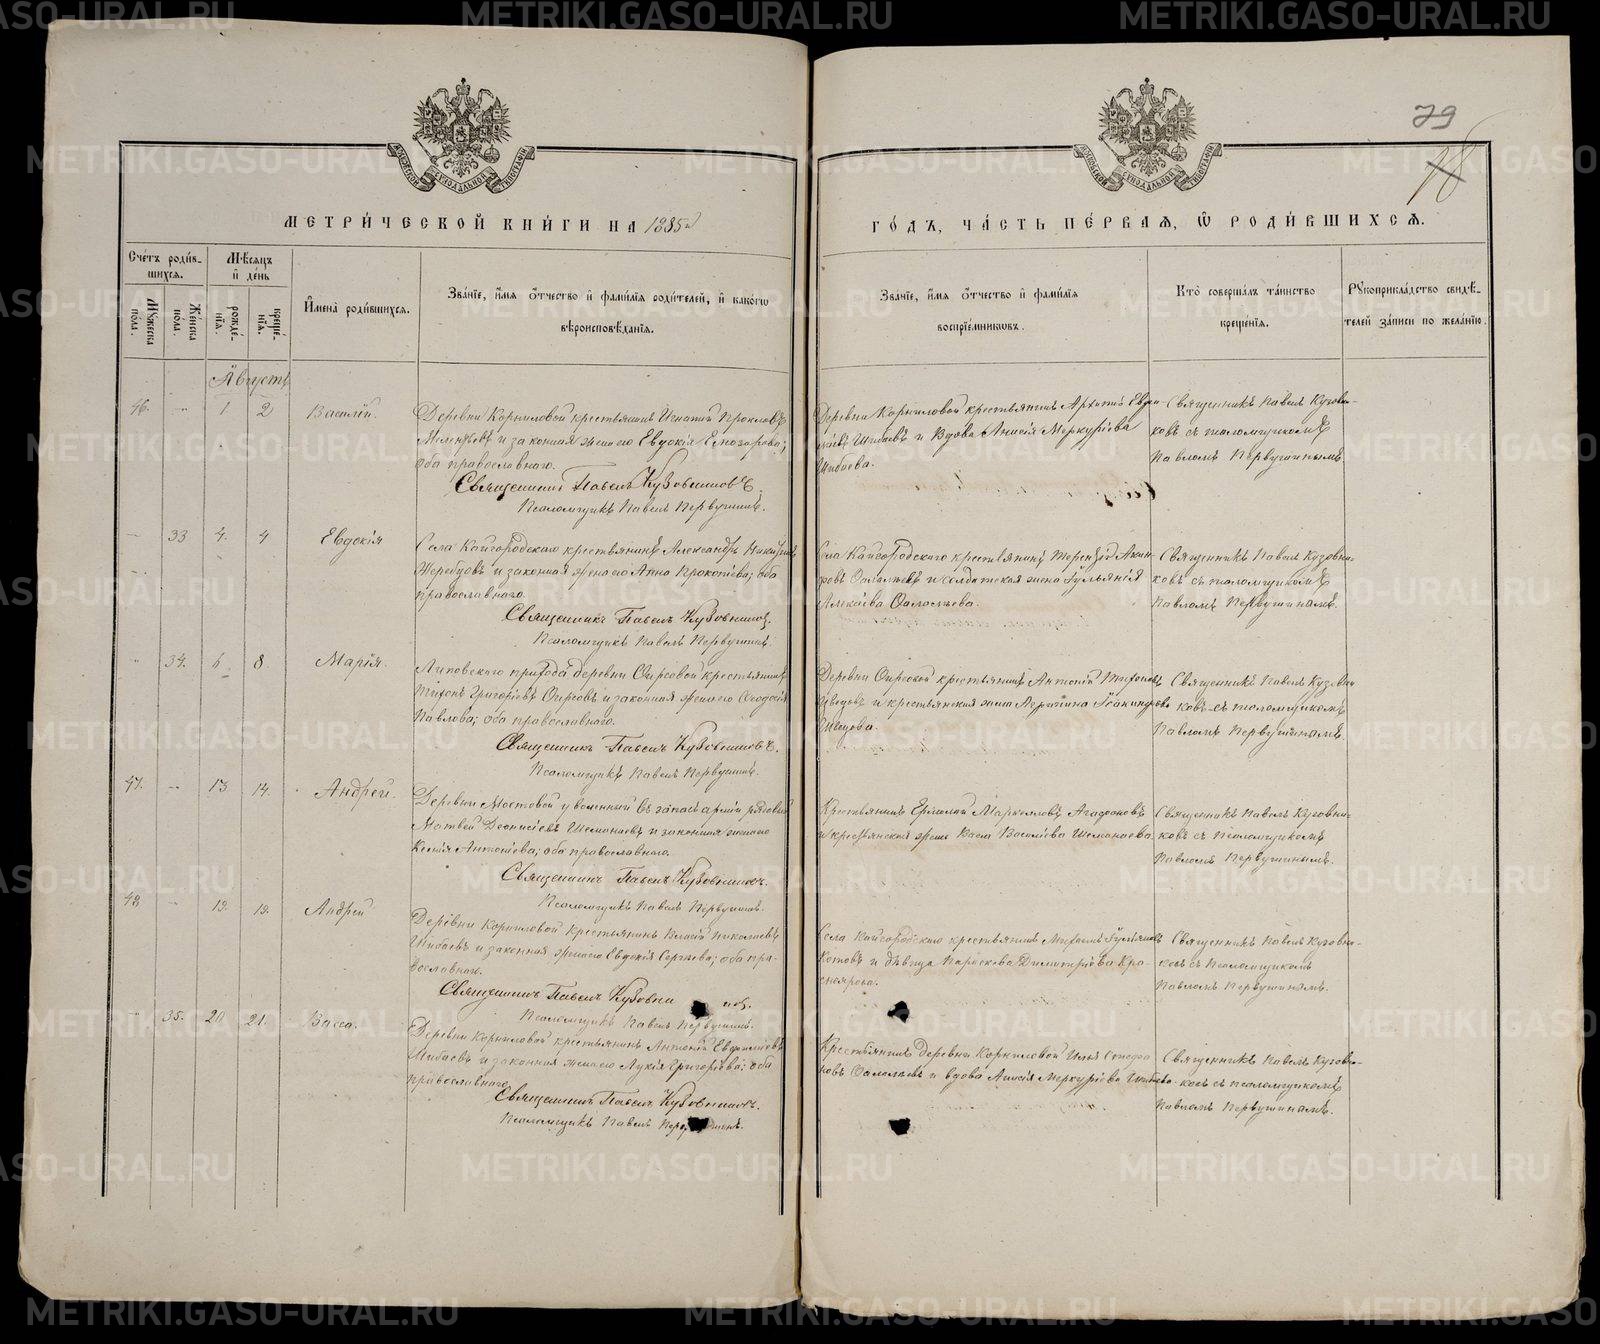 METRIKI.GASO-URAL.RU
79
78
МОСКОВСКОЙ СѴНОДАЛЬНОЙ ТИПОГРАФІИ
МОСКОВСКОЙ СѴНОДАЛЬНОЙ ТИПОГРАФІИ
МЕТРИ́ЧЕСКОЙ КНИ́ГИ НА 1885й
ГО́ДЪ, ЧА́СТЬ ПЕ́РВАЯ, Ѿ РОДИ́ВШИХСЯ.
Сче́тъ роди́в-
шихся.
Мѣсяцъ
и де́нь
Мꙋжеска по́ла.
Же́нска по́ла.
рожде́-нїя.
креще́-нїя.
И҆мена̀ роди́вшихся.
Зва́нїе, и҆́мя о҆́тчество и҆ фами́лїя роди́телей, и҆ како́гѡ
вѣроисповѣ́данїя.
Зва́нїе, и҆́мя о҆́тчество и҆ фами́лїя
воспрїе́мникѡвъ.
Кто̀ соверша́лъ та́инство
креще́нїя.
Рꙋкоприкла́дство свидѣ́-
телей за́писи по жела́нїю.
Августъ
46. 1 2 Василій.
Деревни Корниловой крестьянинъ Игнатій Прокловъ
и законная жена его Евдокія
оба православнаго.
Священникъ Павелъ Кузовниковъ.
Псаломщикъ Павелъ Первушинъ.
Деревни Корниловой крестьянинъ Архипъ
Шибаевъ и вдова Анисія Меркуріева
Шибаева.
Священникъ Павелъ Кузовни-
ковъ съ псаломщикомъ
Павломъ Первушинымъ.
33 4. 4 Евдокія
Села Кайгородскаго крестьянинъ Александръ
Жеребцовъ и законная жена его Анна Прокопіева; оба
православнаго.
Священникъ Павелъ Кузовниковъ.
Псаломщикъ Павелъ Первушинъ.
Села Кайгородскаго крестьянинъ Терентій
и солдатская жена Іульянія
Алексіева
Священникъ Павелъ Кузовни-
ковъ съ псаломщикомъ
Павломъ Первушинымъ.
34. 6 8. Марія.
Липовскаго прихода деревни Фирсовой крестьянинъ
Тихонъ Григорьевъ Фирсовъ и законная жена его Ѳеодосія
Павлова; оба православнаго.
Священникъ Павелъ Кузовниковъ.
Псаломщикъ Павелъ Первушинъ.
Деревни Фирсовой крестьянинъ Антоній Тихоновъ
Швецовъ и крестьянская жена
Швецова.
Священникъ Павелъ Кузовни-
ковъ съ псаломщикомъ
Павломъ Первушинымъ.
47. 13 14. Андрей.
Деревни Мостовой уволенный въ запасъ арміи рядовой
Матвей Діонисіевъ Шеманаевъ и законная жена его
Ксенія Антоніева; оба православнаго.
Священникъ Павелъ Кузовниковъ.
Псаломщикъ Павелъ Первушинъ.
Крестьянинъ Ермилъ Агафоновъ
и крестьянская жена Васса Василіева Шеманаева.
Священникъ Павелъ Кузовни-
ковъ съ псаломщикомъ
Павломъ Первушинымъ.
48 Андрей
Деревни Корниловой крестьянинъ Власій Николаевъ
Шибаевъ и законная жена его Евдокія Сергіева; оба пра-
вославнаго.
Священникъ Павелъ Кузовниковъ.
Псаломщикъ Павелъ Первушинъ.
Села Кайгородскаго крестьянинъ
Котовъ и дѣвица Параскева Димитріева Кра-
сноярова.
Священникъ Павелъ Кузовни-
ковъ съ псаломщикомъ
Павломъ Первушинымъ.
35. 20 21. Васса.
Деревни Корниловой крестьянинъ Антоній Евфиміевъ
Шибаевъ и законная жена его Лукія Григоріева; оба
православнаго.
Священникъ Павелъ Кузовниковъ.
Псаломщикъ Павелъ Первушинъ.
Крестьянинъ деревни Корниловой Илья
и вдова Анисія Меркуріева Шибаева
Священникъ Павелъ Кузовни-
ковъ съ псаломщикомъ
Павломъ Первушинымъ.